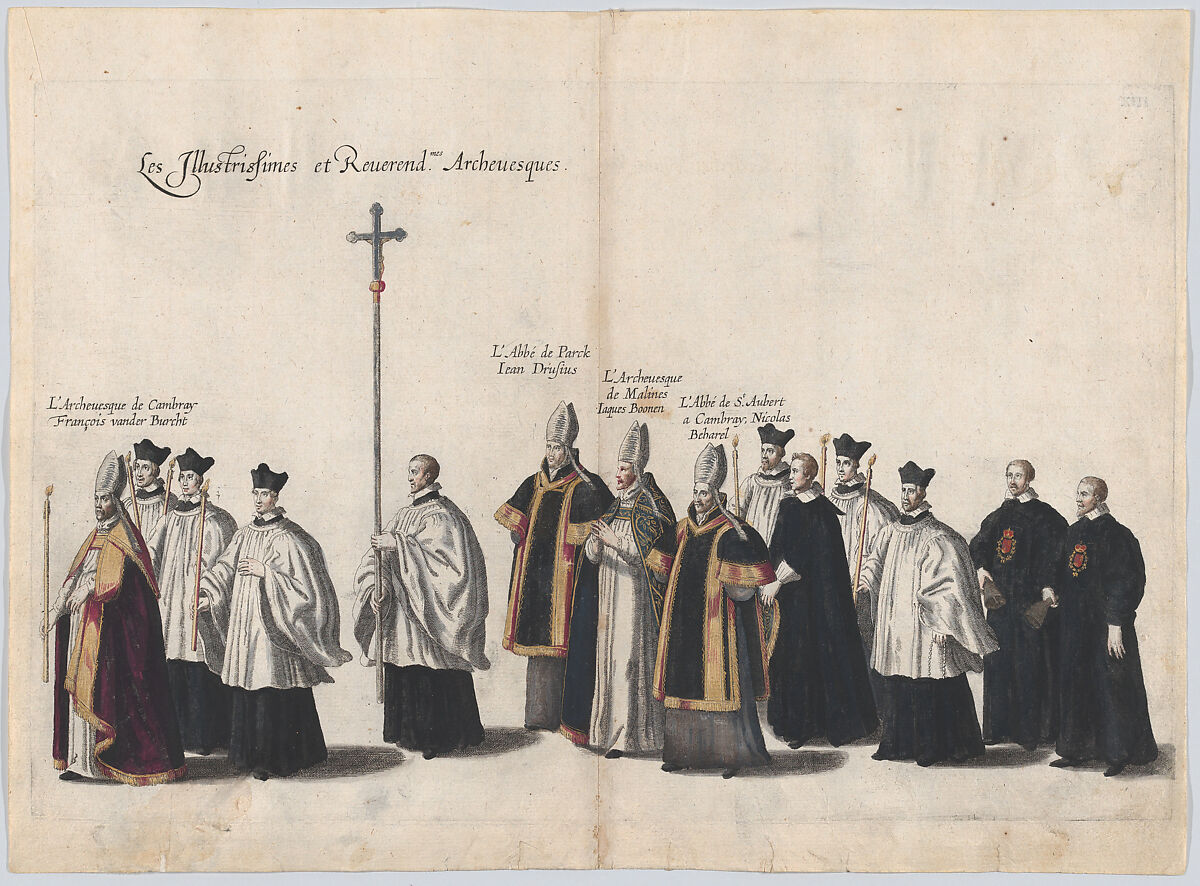 Les Illustrissimes et Reuerend.mes Archeuesques.
L'Archeuesque de Cambray
François vander Burcht
L'Abbé de Parck
Iean Drusius
L'Archeuesque
de Malines
Iaques Boonen
L'Abbé de St. Aubert
a Cambray, Nicolas
Beharel